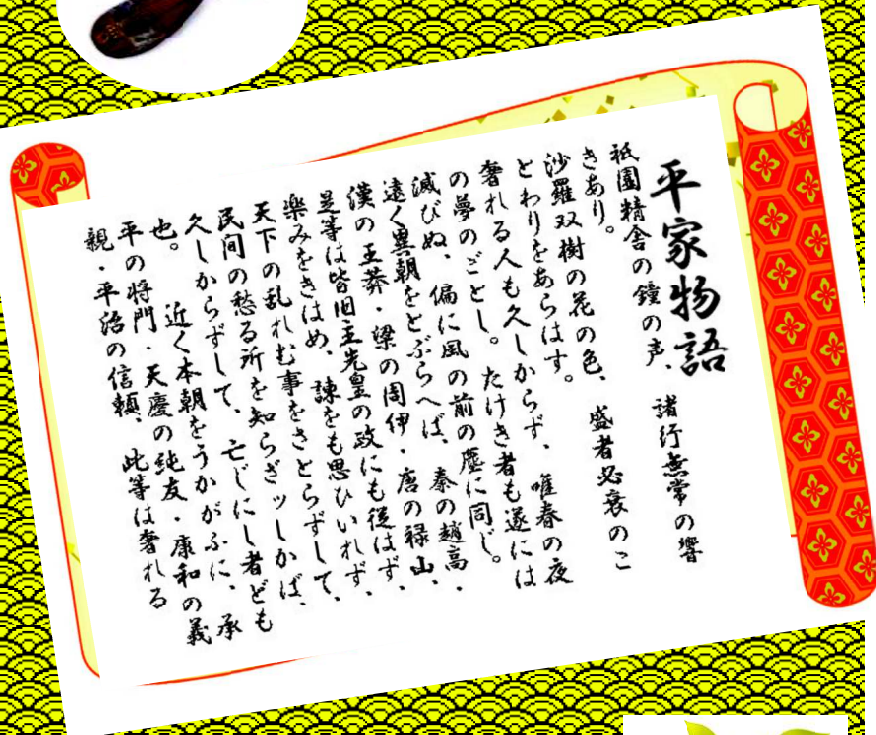 平家物語
祇園精舎の鐘の声、　諸行無常の響
きあり。
沙羅双樹の花の色、　盛者必衰のこ
とわりをあらはす。
奢れる人も久しからず、　唯春の夜
の夢のごとし。たけき者も遂には
滅びぬ、　偏に風の前の塵に同じ。
遠く異朝をとぶらへば、　秦の趙高、
漢の王莽・梁の周伊・唐の禄山、
是等は皆旧主先皇の政にも従はず、
楽みをきはめ、諫をも思ひいれず、
天下の乱れむ事をさとらずして、
民間の愁る所を知らざッしかば、
久しからずして、亡じにし者ども
也。　近く本朝をうかがふに、承
平の将門・天慶の純友・康和の義
親・平治の信頼、　此等は奢れる